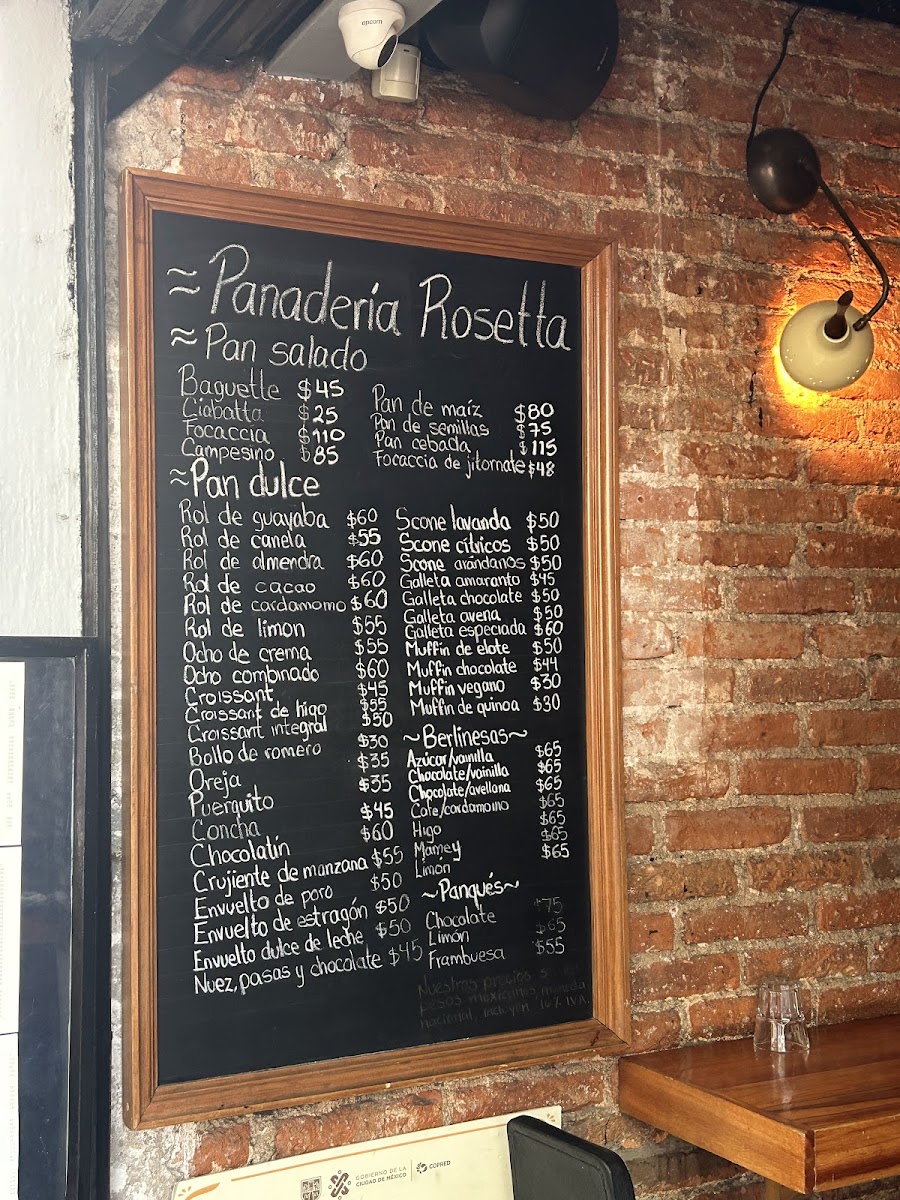 epcom
≈Panadería Rosetta
≈Pan salado
Baguette $45
Ciabatta $25
Focaccia $110
Campesino $85
Pan de maíz $80
Pan de semillas $75
Pan cebada $115
Focaccia de jitomate $48
≈Pan dulce
Rol de guayaba $60
Rol de canela $55
Rol de almendra $60
Rol de cacao $60
Rol de cardamomo $60
Rol de limon $55
Ocho de crema $55
Ocho combinado $60
Croissant $45
Croissant de higo $55
Croissant integral $50
Bollo de romero $30
Oreja $35
Puerquito $35
Concha $45
Chocolatín $60
Crujiente de manzana $55
Envuelto de poro $50
Envuelto de estragón $50
Envuelto dulce de leche $50
Nuez, pasas y chocolate $45
Scone lavanda $50
Scone cítricos $50
Scone arándanos $50
Galleta amaranto $45
Galleta chocolate $50
Galleta avena $50
Galleta especiada $60
Muffin de elote $50
Muffin chocolate $44
Muffin vegano $30
Muffin de quinoa $30
~Berlinesas~
Azúcar/vainilla $65
Chocolate/vainilla $65
Chocolate/avellana $65
Café/cardamomo $65
Higo $65
Mamey $65
Limón $65
~Panqués~
Chocolate $75
Limón $65
Frambuesa $55
Nuestros precios
pesos mexicanos, moneda
nacional, incluyen 16% IVA.
GOBIERNO DE LA
CIUDAD DE MÉXICO
COPRED